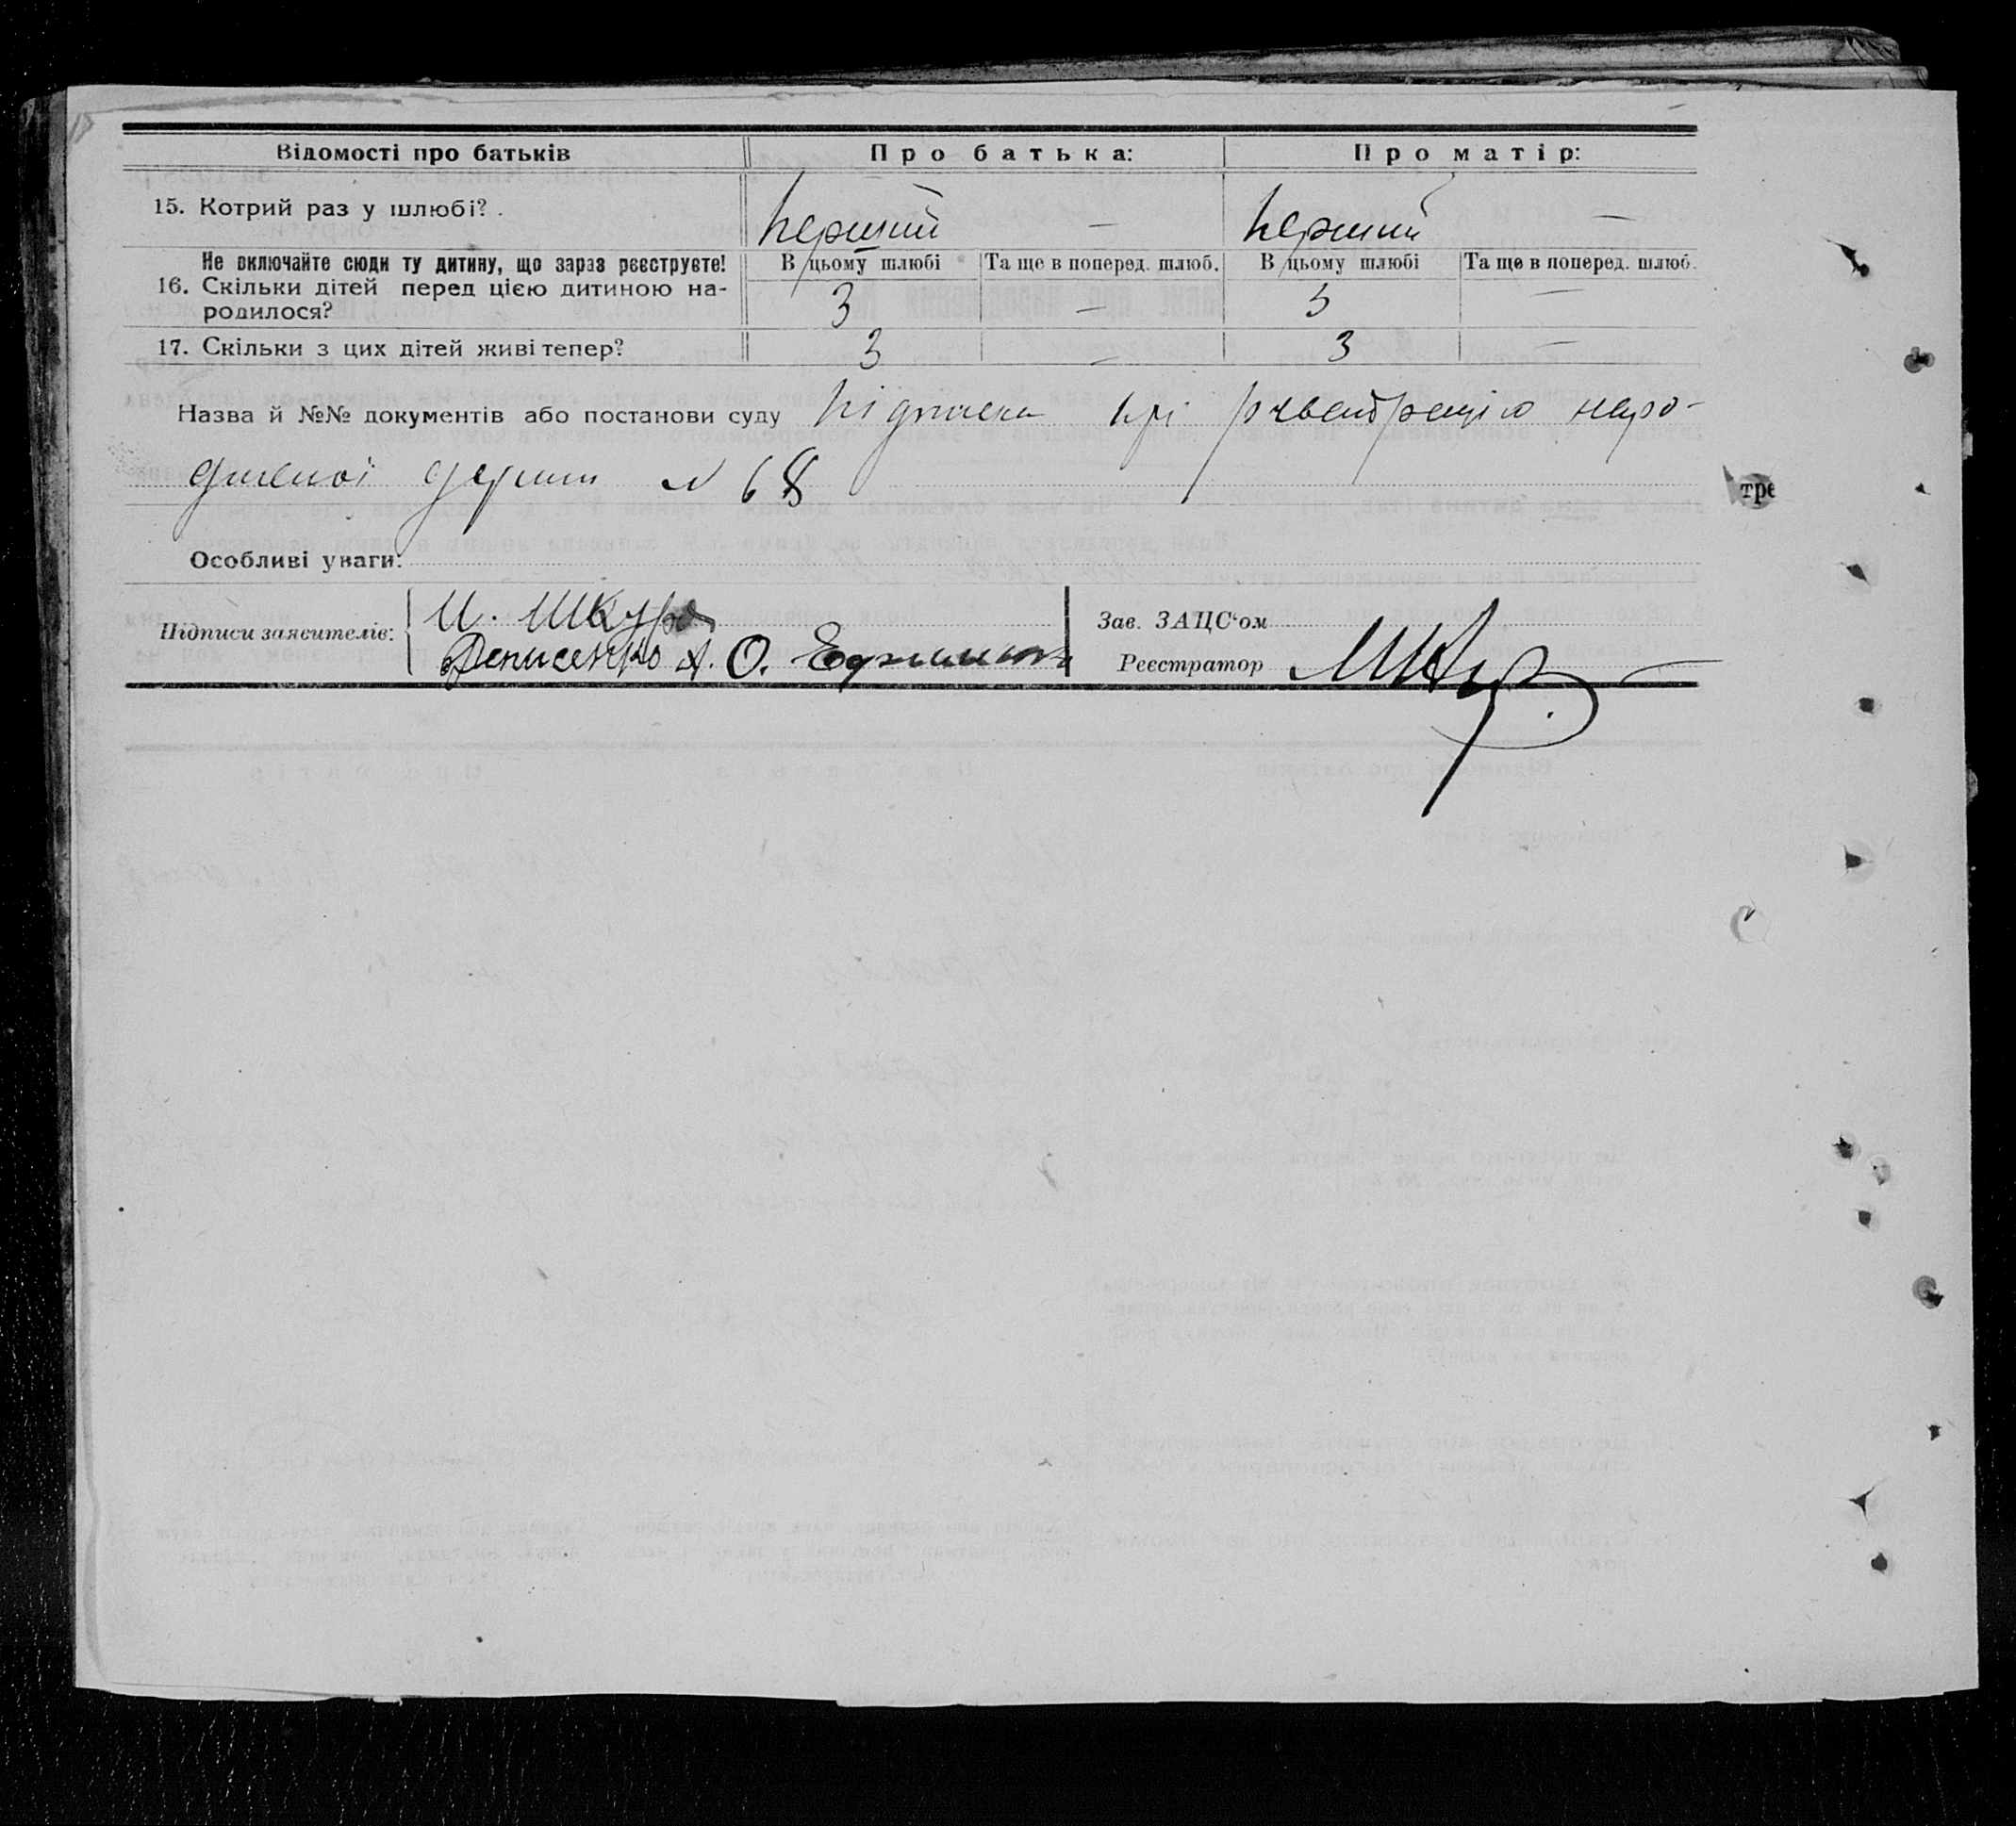 Відомості про батьків Про батька: Про матір:
15. Котрий раз у шлюбі? Перший — Перший —
Не включайте сюди ту дитину, що зараз реєструєте! В цьому шлюбі Та ще в поперед. шлюб. В цьому шлюбі Та ще в поперед. шлюб.
16. Скільки дітей перед цією дитиною на-
родилося? 3 — 3 —
17. Скільки з цих дітей живі тепер? 3 — 3 —
Назва й №№ документів або постанови суду Підписка при наро-
дженої N 68
Особливі уваги:
Підписи заявителів: И. Шкура
Денисенко А. О.
Зав. ЗАЦС'ом
Реєстратор
тре